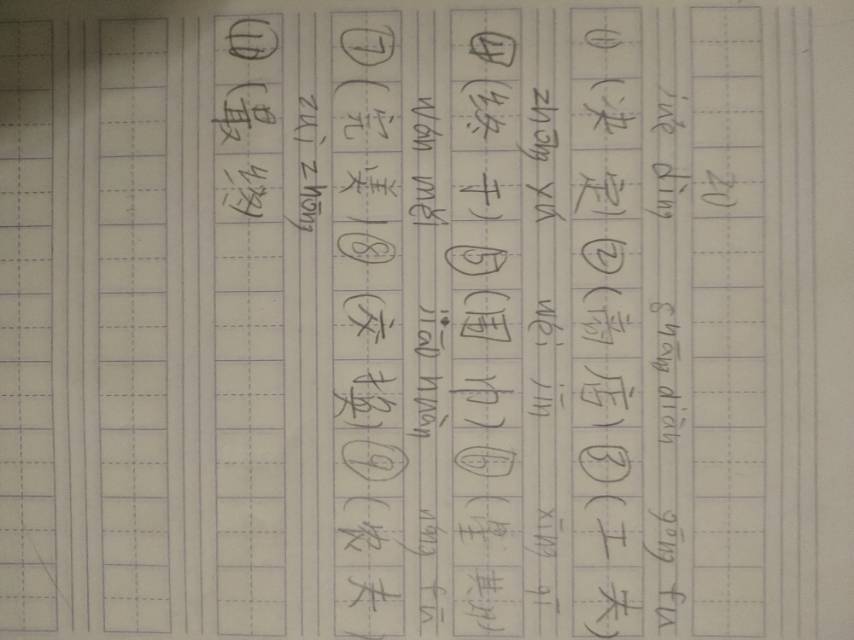 20
jué dìng shāng diàn gōng fu
① (决定) ② (商店) ③ (工夫)
zhōng yú wéi jīn xīng qī
④ (终于) ⑤ (围巾) ⑥ (星期)
wán měi jiāo huàn nóng fū
⑦ (完美) ⑧ (交换) ⑨ (农夫)
zuì zhōng
(最终)